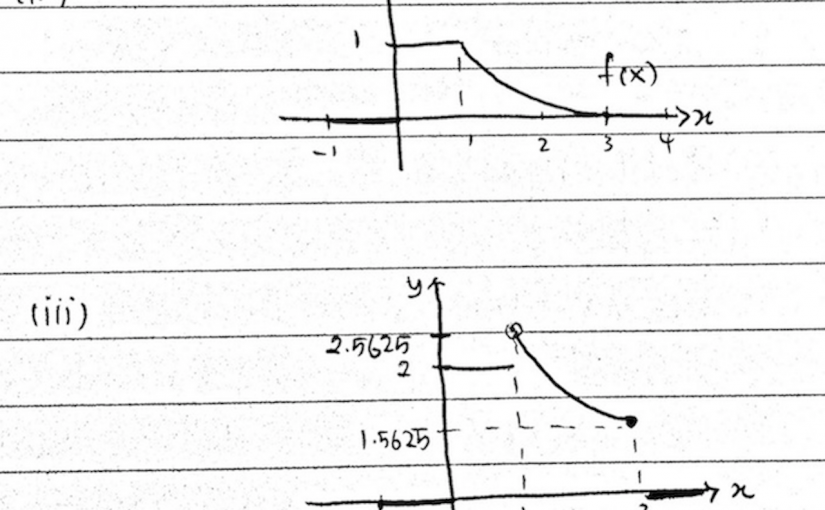 1
f(x)
x
-1 1 2 3 4
(iii)
y
2.5625
2
1.5625
x